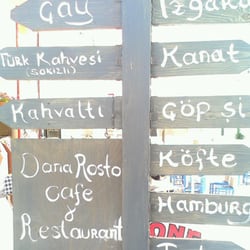 Çay
TÜRK KAHVESİ
(SOKIZLI)
KAHVALTI
Dana Rosto
Cafe
Restaurant
Izgara
Kanat
Göp Şi
Köfte
Hamburg